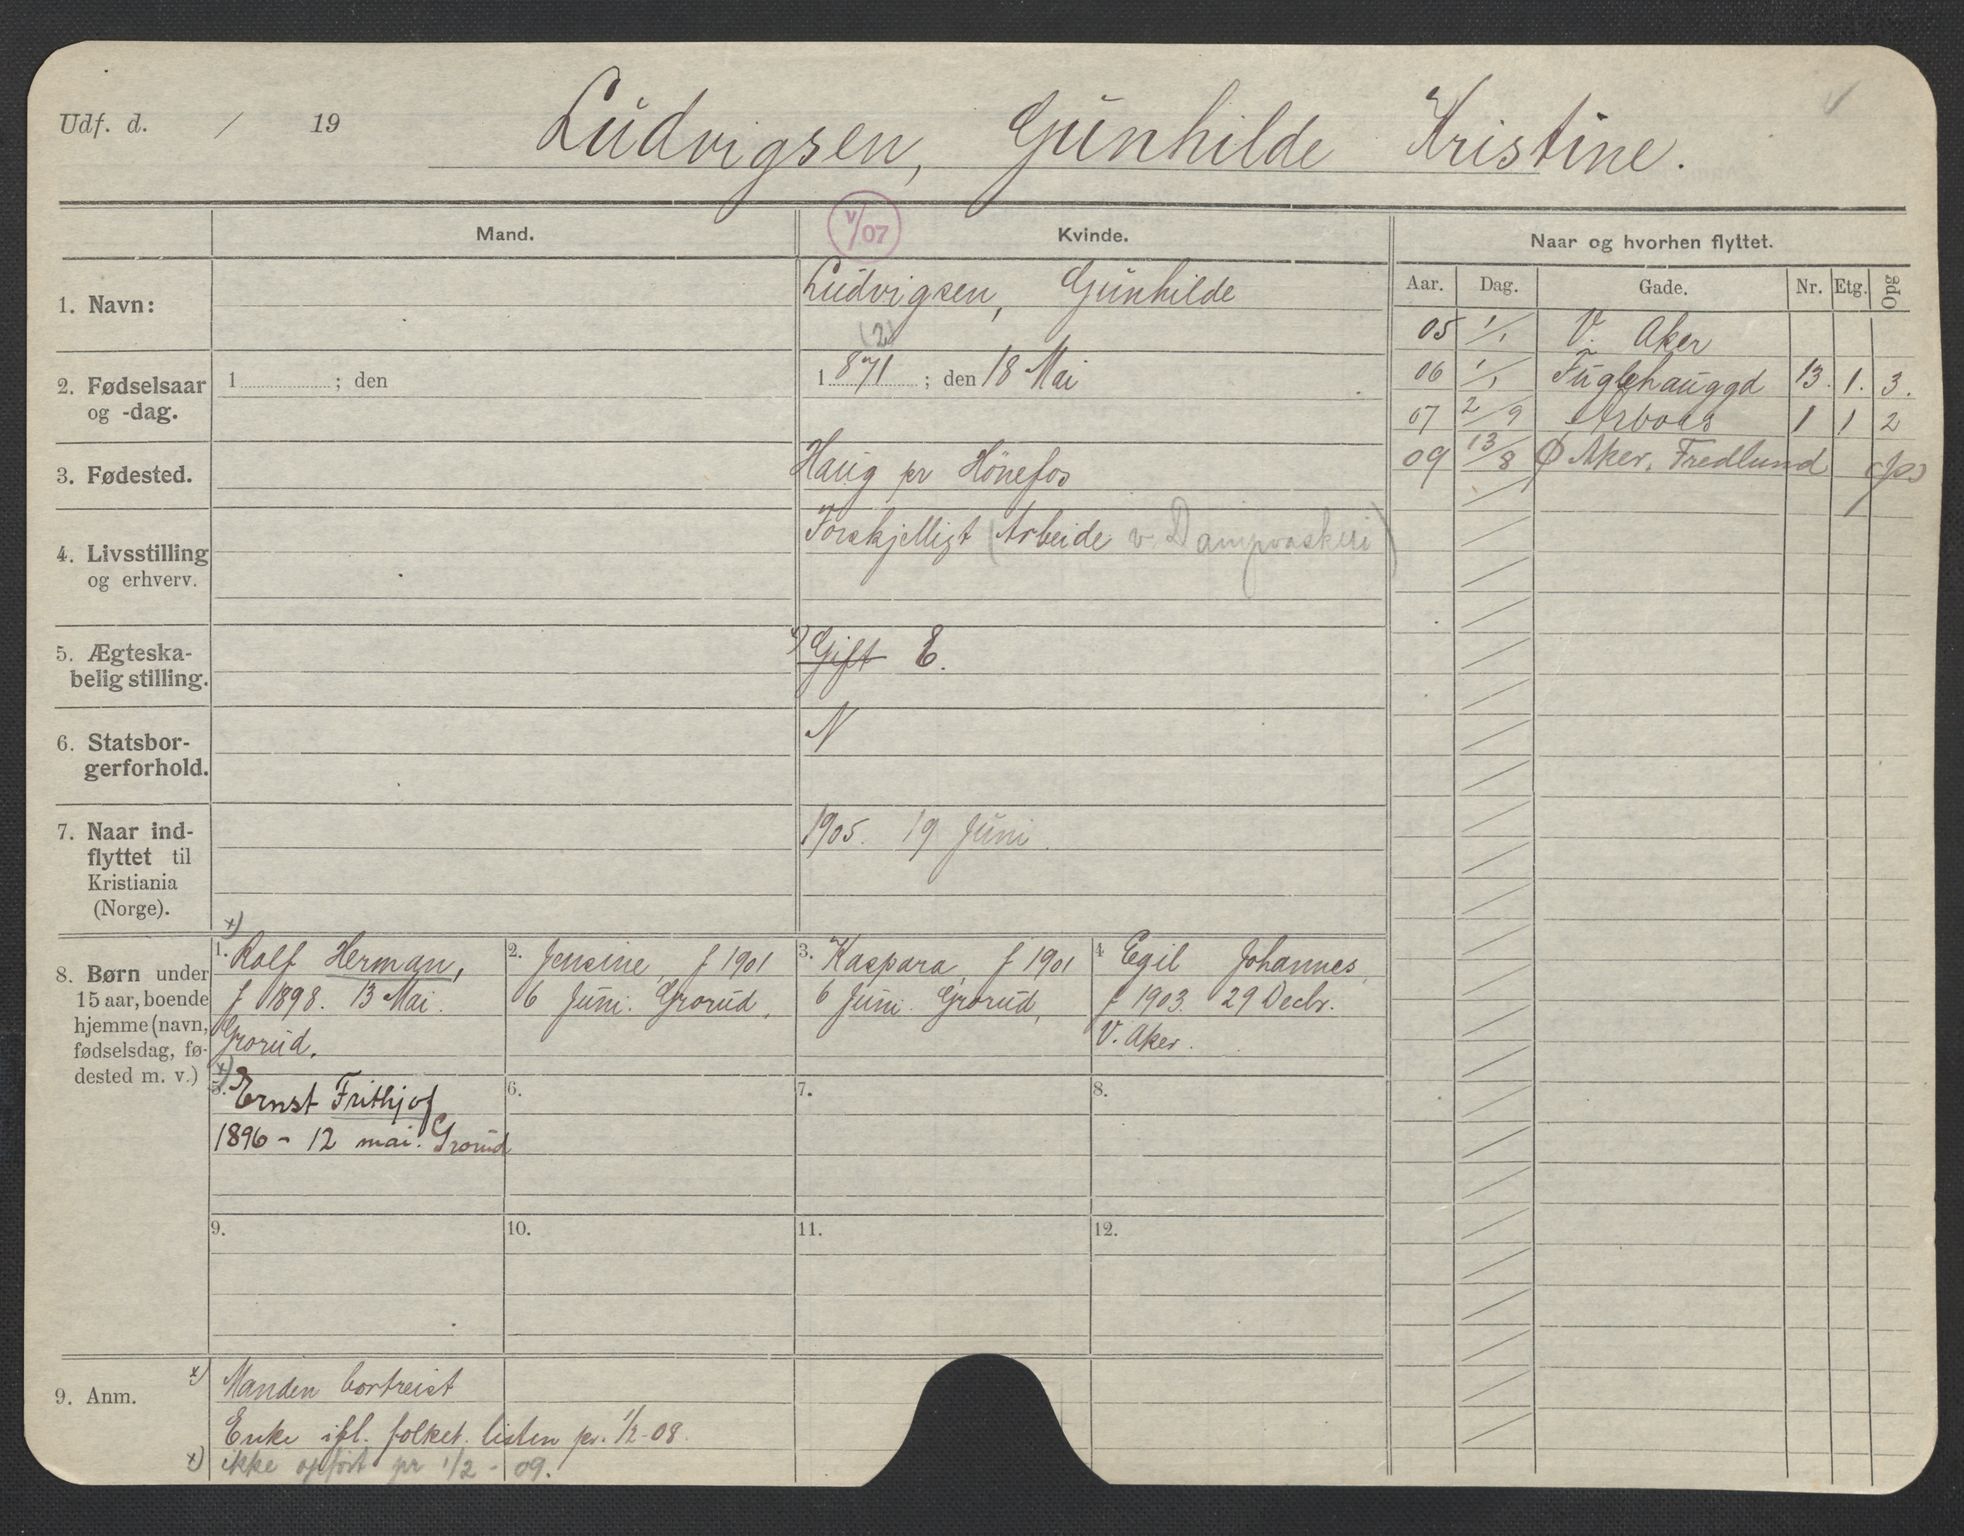 Udf. d. / 19
Ludvigsen, Gunhilde Kristine.
Mand.
V/07
Kvinde.
Naar og hvorhen flyttet.
Aar. Dag. Gade. Nr. Etg. Opg
05 1/1 V. Aker
06 1/1 Fuglehauggd 13. 1. 3.
07 2/9 Arboes 1 1 2
09 13/8 Ø Aker, Fredlund
1. Navn:
Ludvigsen, Gunhilde
2. Fødselsaar
og -dag.
1 ; den
(2)
1871 ; den 18 Mai
3. Fødested.
Haug pr Hönefos
4. Livsstilling
og erhverv.
Forskjelligt (Arbeide v. Dampvaskeri)
5. Ægteska-
belig stilling.
Gift E.
6. Statsbor-
gerforhold.
N
7. Naar ind-
flyttet til
Kristiania
(Norge).
1905. 19 Juni.
8. Børn under
15 aar, boende
hjemme (navn,
fødselsdag, fø-
dested m. v.)
x)
1. Rolf Herman,
f 1898. 13 Mai.
Grorud.
2. Jensine, f 1901
6 Juni. Grorud,
3. Kaspara, f 1901
6 Juni. Grorud,
4 Egil Johannes,
f 1903. 29 Decbr.
V. Aker.
x)
5. Ernst Frithjof
1896 - 12 mai. Grorud
6.
7.
8.
9.
10.
11.
12.
9. Anm.
x) Manden bortreist
Enke ifl. folket. listen pr. 1/2-08.
x) ikke opført pr 1/2 - 09.